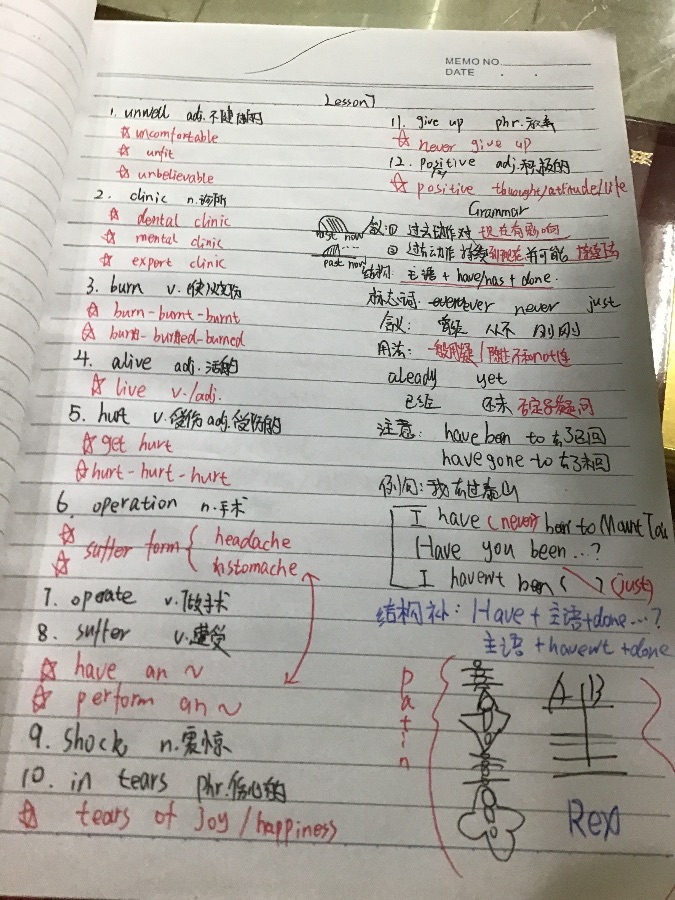 MEMO NO.
DATE . .
Lesson7
1. unwell adj.不健康的
☆ uncomfortable
☆ unfit
☆ unbelievable
2. clinic n.诊所
☆ dental clinic
☆ mental clinic
☆ export clinic
3. burn v.使火烧伤
☆ burn-burnt-burnt
☆ burn-burned-burned
4. alive adj.活的
☆ live v./adj.
5. hurt v.受伤 adj.受伤的
☆ get hurt
☆ hurt-hurt-hurt
6. operation n.手术
☆ suffer form { headache
☆ stomache
7. operate v.做手术
8. suffer v.遭受
☆ have an ~
☆ perform an ~
9. shock n.震惊
10. in tears phr.伤心的
☆ tears of joy/happiness
11. give up phr.放弃
☆ never give up
12. positive adj.积极的
☆ positive thought/attitude/life
Grammar
past now 含义:① 过去动作对现在有影响
past now ② 过去动作持续到现在并可能持续
结构: 主语 + have/has + done.
标志词: ever never just
含义: 曾经 从不 刚刚
用法: 一般用疑/陈 不和not连
aleady yet
已经 还未 否定了疑问
注意: have ben to 去了已回
have gone to 去了未回
例句:我去过泰山
I have (never) ben to Mount Tai
Have you been...?
I havent ben ( ) (just)
结构补: Have + 主语+done...?
主语 + havent + done
Datin
A B
Rex